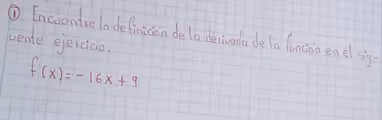 ① Encuentre la definición de la derivada de la función en el sig-
uente ejercicio.
f'(x) = - 16x + 9